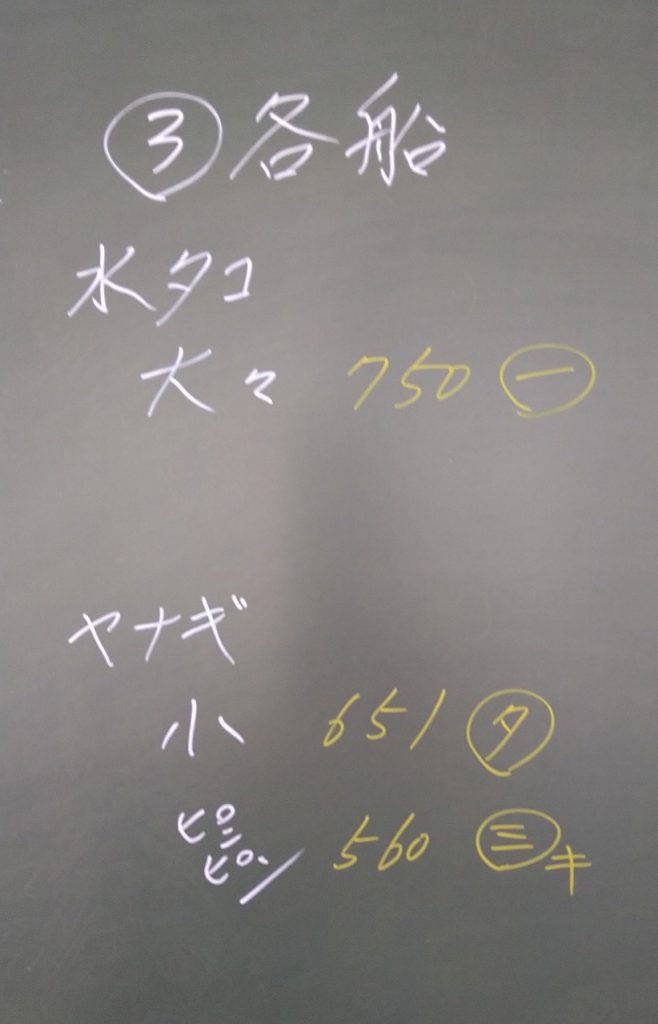 ③各船
水タコ
大々 750 ㊀
ヤナギ
小 651 タ
ピンピン 560 ㊂キ